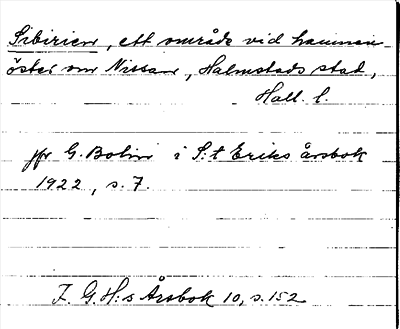 Sibirien, ett område vid hamnen
öster om Nissan, Halmstads stad,
Hall. l.
jfr G. Bolin i S:t Eriks årsbok
1922, s. 7.
F. G. H:s Årsbok 10, s. 152